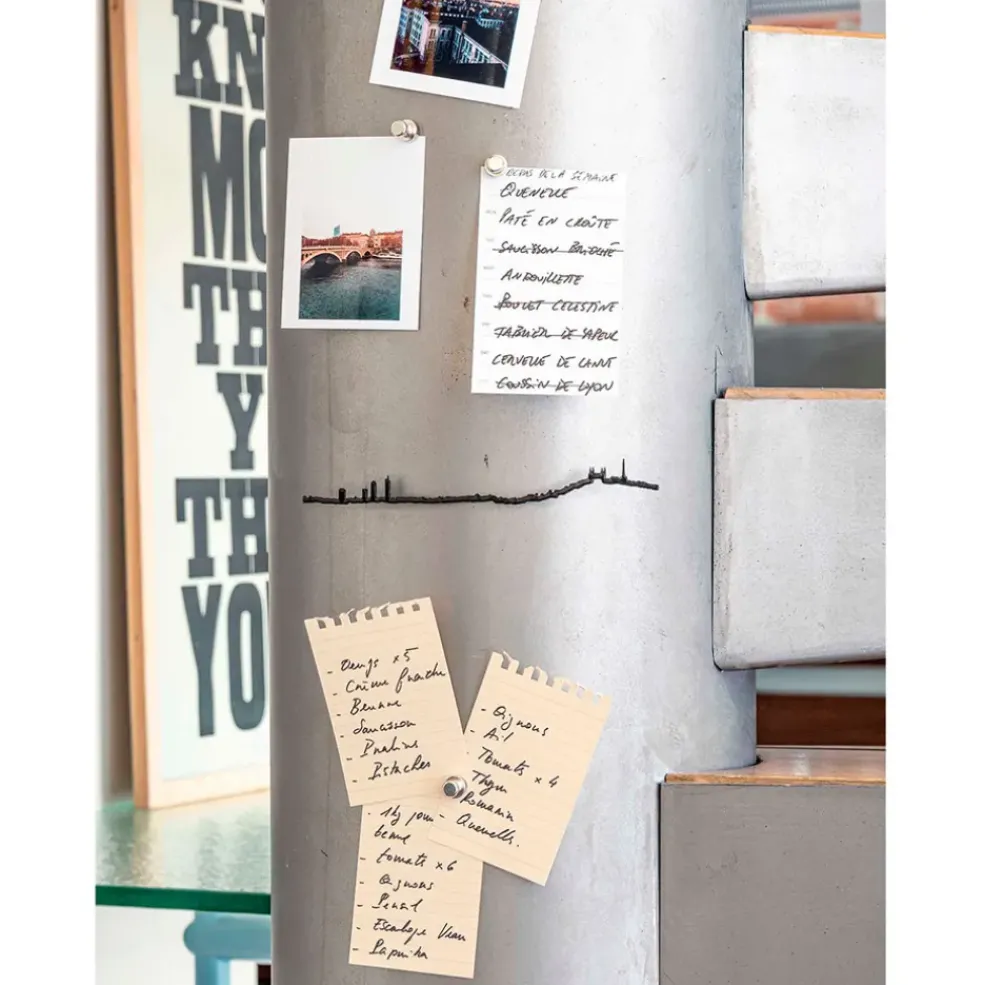 KN
MO
TH
Y
TH
YO
REPAS DE LA SEMAINE
QUENELLE
PATÉ EN CROÛTE
SAUCISSON BRIOCHÉ
ANDOUILLETTE
POULET CELESTINE
TABLIER DE SAPEUR
CERVELLE DE CANUT
COUSSIN DE LYON
- Oeufs x5
- Crème fraiche
- Beurre
- Saucisson
- Pralines
- Pistaches
- Oignons
- Ail
Tomates x 4
Thym
Romarin
- Quenelles.
- 1kg pom
- tomates x6
- Oignons
- Persil
- Escalope Veau
- Paprika